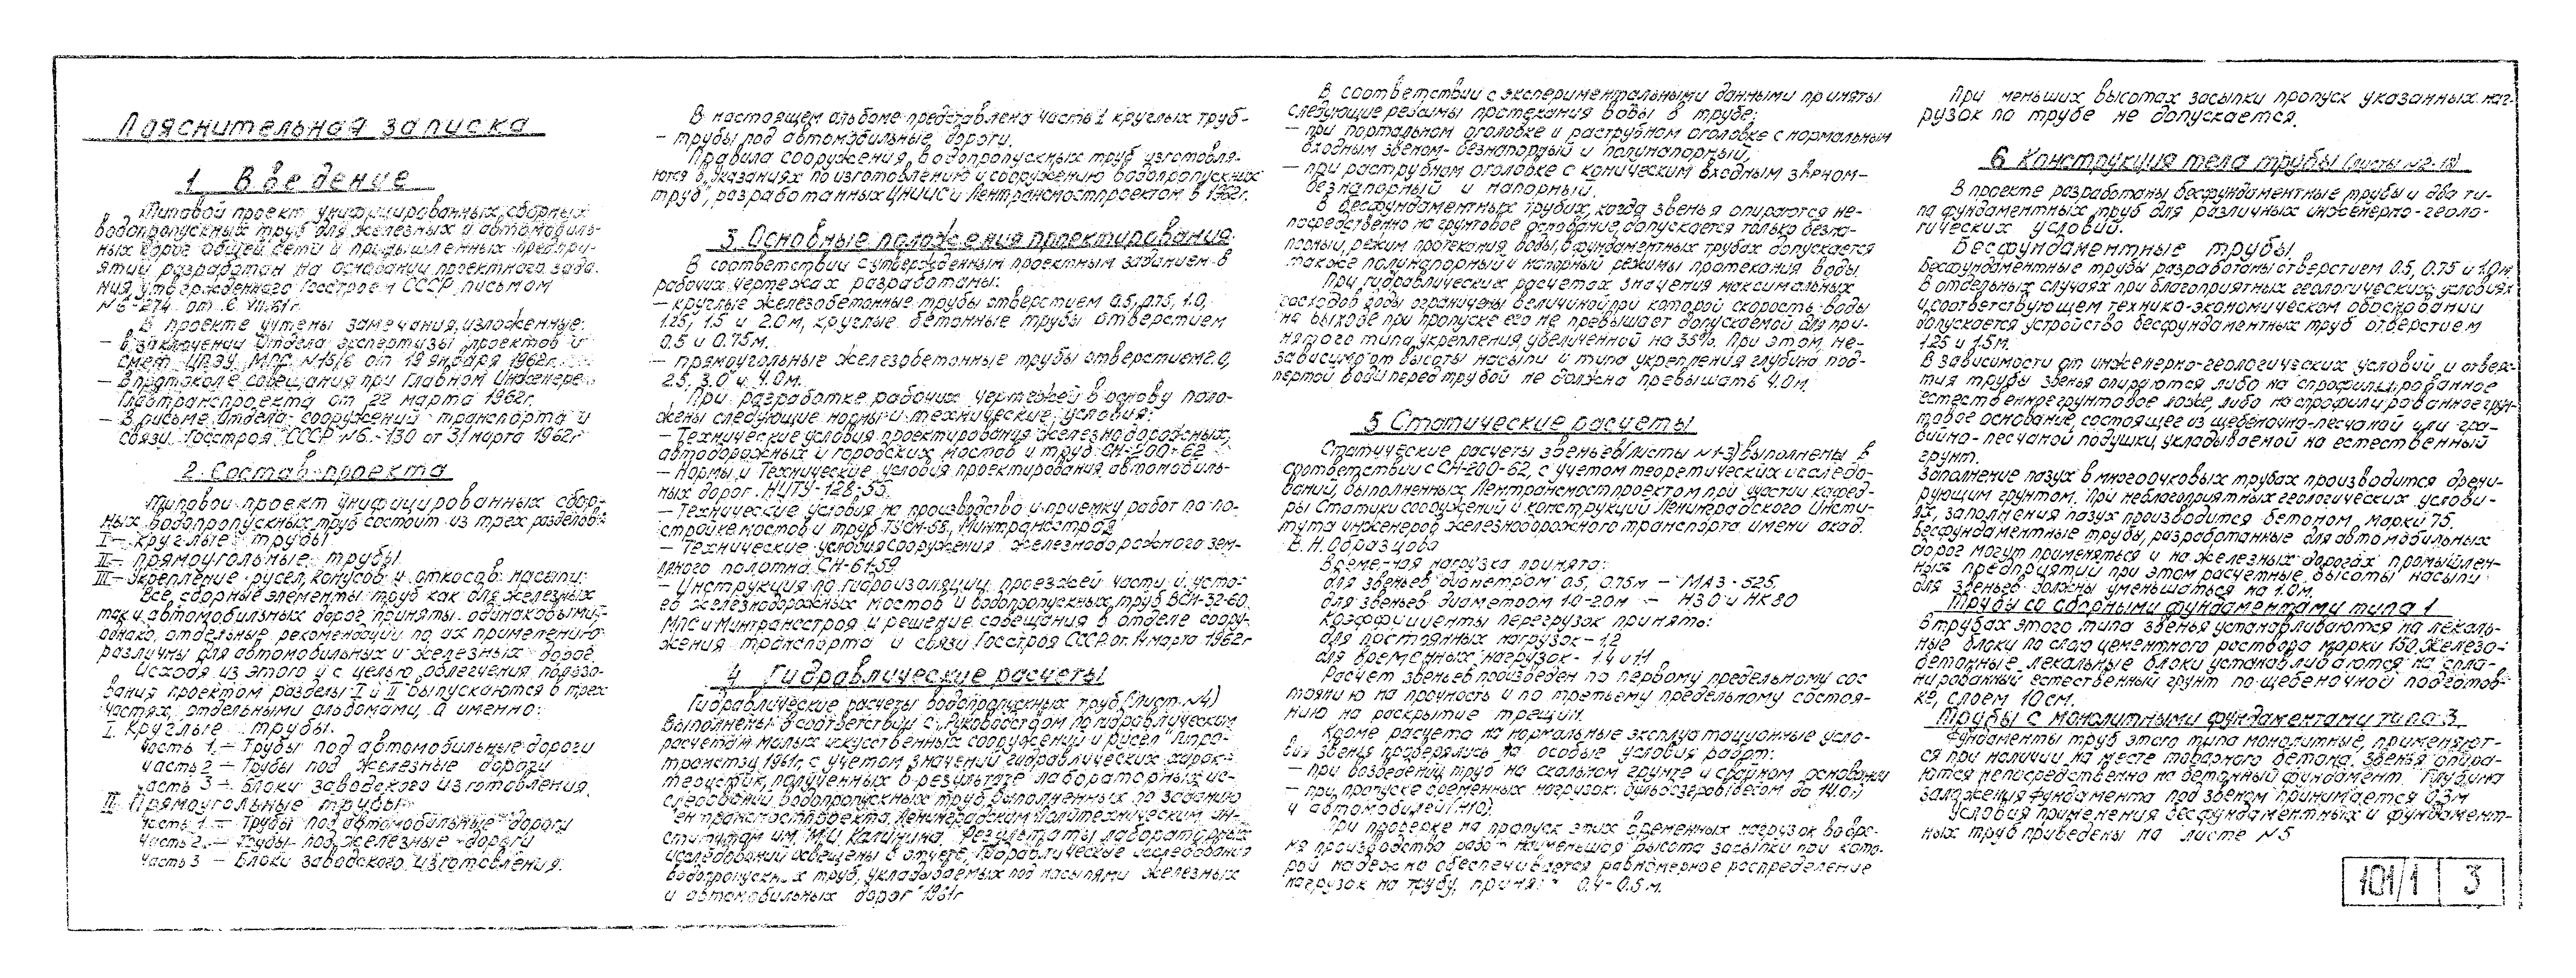 Пояснительная записка
1. Введение
Типовой проект унифицированных сборных
водопропускных труб для железных и автомобиль-
ных дорог общей сети и промышленных предпри-
ятий разработан на основании проектного зада-
ния, утвержденного Госстроем СССР, письмом
№ 6-274 от 6 VII.61г.
В проекте учтены замечания, изложенные:
— в заключении Отдела экспертизы проектов и
смет ЦПЭУ МПС №15/6 от 19 января 1962г.
— в протоколе совещания при Главном Инженере
Главтранспроекта от 22 марта 1962г.
— в письме Отдела сооружений транспорта и
связи Госстроя СССР №6-130 от 31 марта 1962г
2. Состав проекта
Типовой проект унифицированных сбор-
ных водопропускных труб состоит из трех разделов:
I — круглые трубы
II — прямоугольные трубы
III — Укрепление русел, конусов и откосов насыпи.
Все сборные элементы труб как для железных
так и автомобильных дорог приняты одинаковыми,
однако, отдельные рекомендации по их применению
различны для автомобильных и железных дорог.
Исходя из этого и с целью облегчения пользо-
вания проектом разделы I и II выпускаются в трех
частях, отдельными альбомами, а именно:
I. Круглые трубы.
Часть 1. — Трубы под автомобильные дороги
часть 2 — Трубы под железные дороги
часть 3 — Блоки заводского изготовления.
II. Прямоугольные трубы
Часть 1. — Трубы под автомобильные дороги
Часть 2. — Трубы под железные дороги
Часть 3 — Блоки заводского изготовления.
В настоящем альбоме представлена часть 1 круглых труб-
— трубы под автомобильные дороги.
Правила сооружения водопропускных труб изготовля-
ются в „указаниях по изготовлению и сооружению водопропускных
труб", разработанных ЦНИИС и Лентрансмостпроектом в 1962г.
3. Основные положения проектирования.
В соответствии с утвержденным проектным заданием в
рабочих чертежах разработаны:
— круглые железобетонные трубы отверстием 0.5, 0.75, 1.0,
1.25, 1.5 и 2.0м, круглые бетонные трубы отверстием
0.5 и 0.75м.
— прямоугольные железобетонные трубы отверстием 2.0,
2.5, 3.0 и 4.0м.
При разработке рабочих чертежей в основу поло-
жены следующие нормы и технические условия:
— Технические условия проектирования железнодорожных,
автодорожных и городских мостов и труб СН-200-62
— Нормы и Технические условия проектирования автомобиль-
ных дорог. НиТУ-128-55.
— Технические условия на производство и приемку работ по по-
стройке мостов и труб ТУСМ-58, Минтрансстроя
— Технические условия сооружения железнодорожного зем-
ляного полотна СН-61-59
— Инструкция по гидроизоляции проезжей части и усто-
ев железнодорожных мостов и водопропускных труб ВСН-32-60.
МПС и Минтрансстроя и решение совещания в отделе соору-
жения транспорта и связи Госстроя СССР от 14 марта 1962г
4. Гидравлические расчеты
Гидравлические расчеты водопропускных труб (лист №4)
выполнены в соответствии с „Руководством по гидравлическим
расчетам малых искусственных сооружений и русел" Гипро-
транстэи 1961г, с учетом значений гидравлических харак-
теристик, полученных в результате лабораторных ис-
следований водопропускных труб, выполненных по заданию
Лентрансмостпроекта Ленинградским Политехническим ин-
ститутом им. М.И. Калинина. Результаты лабораторных
исследований освещены в отчете „Гидравлические исследования
водопропускных труб, укладываемых под насыпями железных
и автомобильных дорог" 1961г
В соответствии с экспериментальными данными приняты
следующие режимы протекания воды в трубе:
— при портальном оголовке и раструбном оголовке с нормальным
входным звеном- безнапорный и полунапорный,
— при раструбном оголовке с коническим входным звеном-
безнапорный и напорный.
В бесфундаментных трубах, когда звенья опираются не-
посредственно на грунтовое основание, допускается только безна-
порный режим протекания воды, в фундаментных трубах допускается
также полунапорный и напорный режимы протекания воды.
При гидравлических расчетах значения максимальных
расходов воды ограничены величиной при которой скорость воды
на выходе при пропуске его не превышает допускаемой для при-
нятого типа укрепления, увеличенной на 35%. При этом, не-
зависимо от высоты насыпи и типа укрепления глубина под-
пертой воды перед трубой не должна превышать 4.0м.
5 Статические расчеты
Статические расчеты звеньев (листы №1-3) выполнены в
соответствии с СН-200-62, с учетом теоретических исследо-
ваний, выполненных Лентрансмостпроектом при участии кафед-
ры Статики сооружений и конструкций Ленинградского Инсти-
тута инженеров железнодорожного транспорта имени акад.
В. Н. Образцова
Временная нагрузка принята:
для звеньев диаметром 0.5, 0.75м — МАЗ-525,
для звеньев диаметром 1.0-2.0м — Н30 и НК80
Коэффициенты перегрузок приняты:
для постоянных нагрузок — 1.2
для временных нагрузок — 1.4 и 1.1
Расчет звеньев произведен по первому предельному сос
тоянию на прочность и по третьему предельному состоя-
нию на раскрытие трещин.
Кроме расчета на нормальные эксплуатационные усло-
вия звенья проверялись на особые условия работ:
— при возведении труб на скальном грунте и свайном основании
— при пропуске временных нагрузок: бульдозеров (весом до 14.0т)
и автомобилей (Н10).
При проверке на пропуск этих временных нагрузок во вре-
мя производства работ наименьшая высота засыпки при кото-
рой надежно обеспечивается равномерное распределение
нагрузок на трубу, принята 0.4-0.5 м.
При меньших высотах засыпки пропуск указанных наг-
рузок по трубе не допускается.
6 Конструкция тела трубы (листы №12-18)
В проекте разработаны бесфундаментные трубы и два ти-
па фундаментных труб для различных инженерно-геоло-
гических условий.
Бесфундаментные трубы.
Бесфундаментные трубы разработаны отверстием 0.5, 0.75 и 1.0м.
В отдельных случаях при благоприятных геологических условиях
и соответствующем технико-экономическом обосновании
допускается устройство бесфундаментных труб отверстием
1.25 и 1.5м.
В зависимости от инженерно-геологических условий и отверс-
тия трубы звенья опираются либо на спрофилированное
естественное грунтовое ложе, либо на спрофилированное грун-
товое основание, состоящее из щебеночно-песчаной или гра-
вийно-песчаной подушки, укладываемой на естественный
грунт.
Заполнение пазух в многоочковых трубах производится дрени-
рующим грунтом. При неблагоприятных геологических услови-
ях, заполнения пазух производится бетоном марки 75.
Бесфундаментные трубы, разработанные для автомобильных
дорог могут применяться и на железных дорогах промышлен-
ных предприятий при этом расчетные высоты насыпи
для звеньев должны уменьшаться на 1.0м.
Трубы со сборными фундаментами типа 1
В трубах этого типа звенья устанавливаются на лекаль-
ные блоки по слою цементного раствора марки 150. Железо-
бетонные лекальные блоки устанавливаются на спла-
нированный естественный грунт по щебеночной подготов-
ке, слоем 10см.
Трубы с монолитными фундаментами типа 3
Фундаменты труб этого типа монолитные, применяют-
ся при наличии на месте товарного бетона. Звенья опира-
ются непосредственно на бетонный фундамент. Глубина
заложения фундамента под звеном принимается 0.3м
Условия применения бесфундаментных и фундамент-
ных труб приведены на листе №5
101/1 3